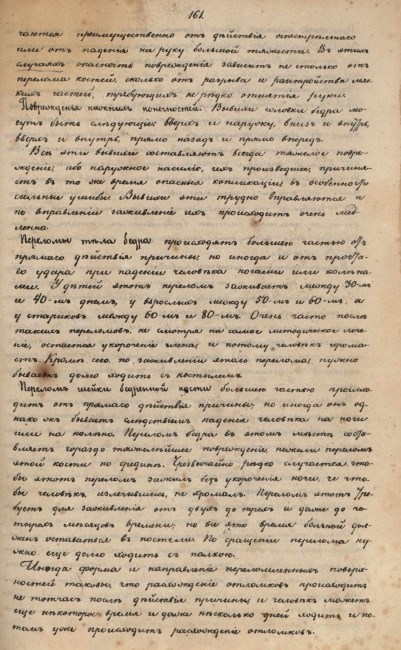 161.
чаются преимущественно отъ дѣйствія огнестрельнаго
или отъ паденія на руку большой тяжести. Въ этихъ
случаяхъ опасность поврежденія зависитъ не столько отъ
перелома костей, сколько отъ разрыва и разстройства мяг-
кихъ частей, требующихъ не рѣдко отнятія руки.
Поврежденья нижнихъ конечностей. Вывихи головки бедра мо-
гутъ быть слѣдующіе: вверхъ и наружу, внизъ и внутрь,
вверхъ и внутрь, прямо назадъ и прямо впередъ.
Всѣ эти вывихи составляютъ всегда тяжелое повре-
жденіе; ибо наружное насиліе, ихъ производящее, причиня-
етъ въ то же время опасныя
сильные ушибы. Вывихи эти трудно вправляются и
по вправленіи заживленіе ихъ происходитъ очень мед-
ленно.
Переломы тѣла бедра происходятъ большею частью отъ
прямаго дѣйствія причины; но иногда и отъ
удара при паденіи человѣка ногами или колѣна-
ми. У дѣтей этотъ переломъ заживаетъ между 30-мъ
и 40-мъ днемъ, у взрослыхъ между 50-мъ и 60-мъ, а
у стариковъ между 60-мъ и 80-мъ. Очень часто послѣ
такихъ переломовъ, не смотря на самое методическое лече-
ніе, остается укороченіе члена; и потому человѣкъ хрома-
етъ. Кромѣ сего, по заживленіи этаго перелома, нужно
бываетъ долго ходить съ костылемъ.
Переломъ шейки бедренной кости большею частью происхо-
дитъ отъ прямаго дѣйствія причины; но иногда онъ од-
нако жъ бываетъ слѣдствіемъ паденія человѣка на ноги
или на колѣна. Переломъ бедра въ этомъ мѣстѣ соста-
вляетъ гораздо тяжелѣйшее поврежденіе нежели переломъ
этой кости по срединѣ. Чрезвычайно рѣдко случается что-
бы этотъ переломъ зажилъ безъ укороченія ноги, и что-
бы человѣкъ, излечившись, не хромалъ. Переломъ этотъ тре-
буетъ для заживленія отъ двухъ до трехъ и даже до че-
тырехъ мѣсяцовъ времени; но все это время больной дол-
женъ оставаться въ постели. По сращеніи перелома ну-
жно еще долго ходить съ палкою.
Иногда форма и направленіе переломленныхъ поверх-
ностей таковы, что расхожденіе отломковъ происходитъ
не тотчасъ послѣ дѣйствія причины, и человѣкъ можетъ
еще нѣкоторое время и даже нѣсколько дней ходить, и по-
томъ уже происходитъ расхожденіе отломковъ.